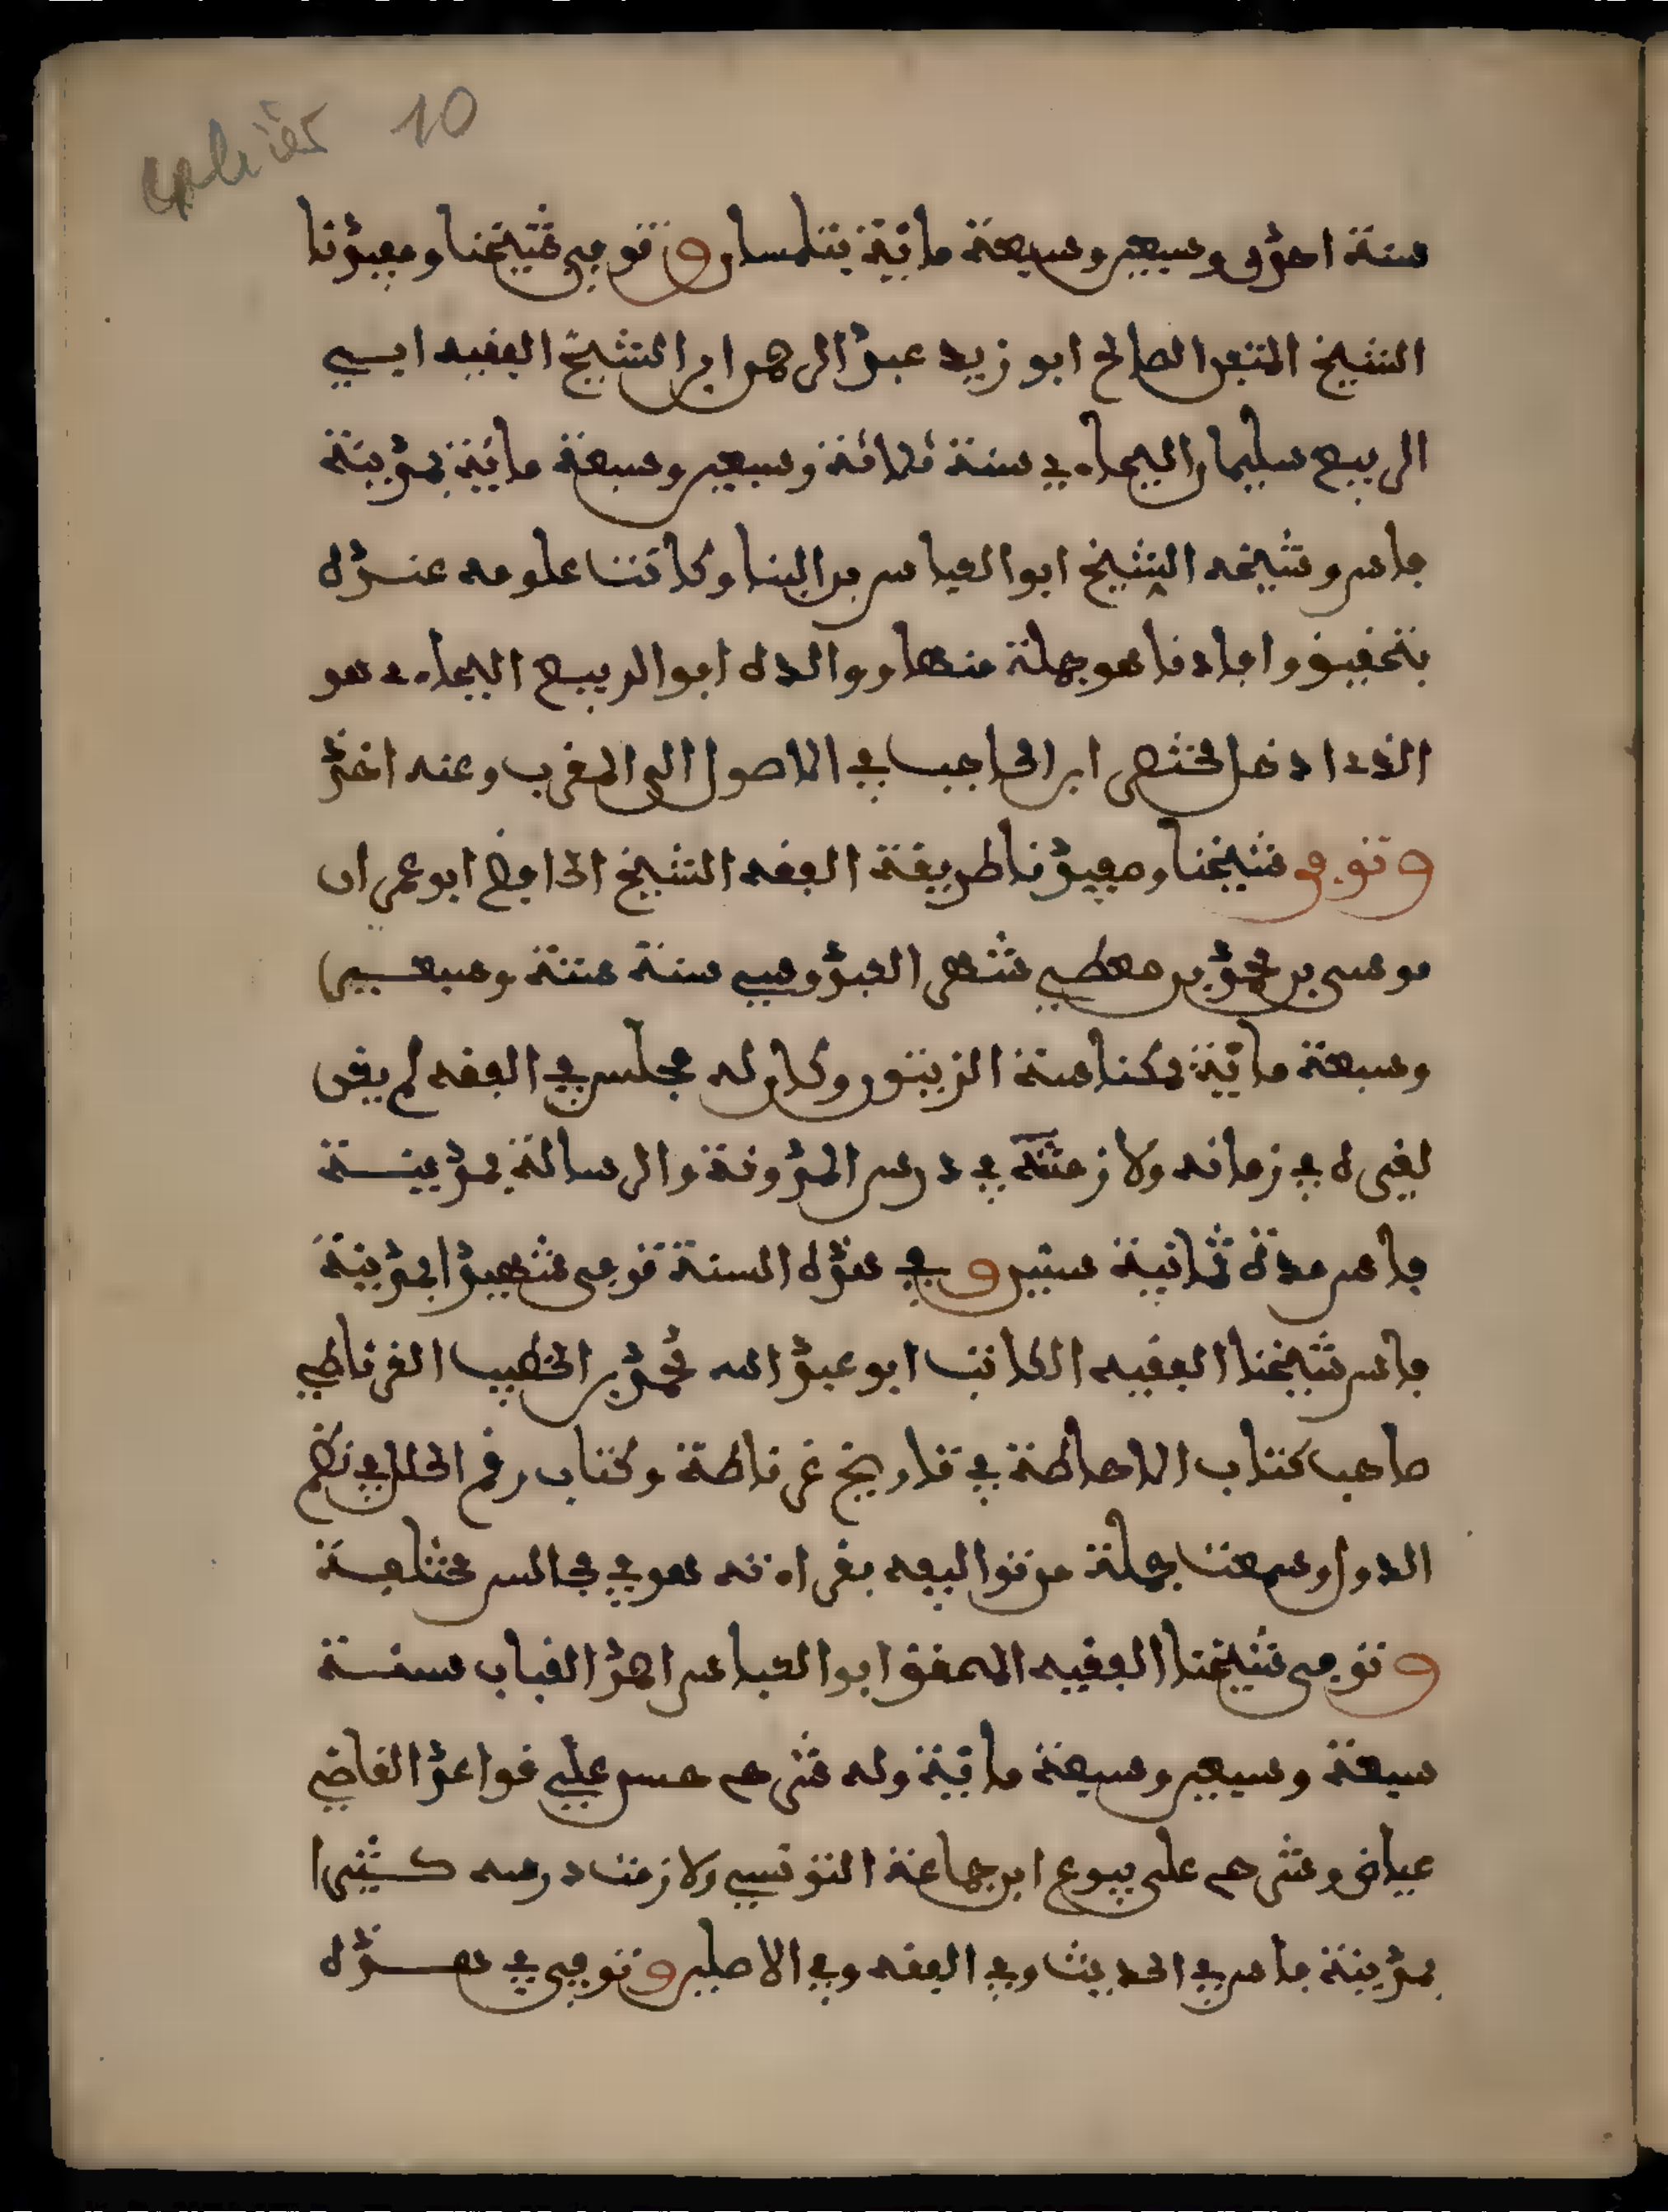 كفاش 10
سنة احدى وسبعين وسبعة مائة بتلمسان وتوفي شيخنا ومفيدنا
الشيخ المتفنن الصالح ابو زيد عبد الرحمن ابن الشيخ الفقيه ابي
الربيع سليمان اللجاءي سنة ثلاثة وسبعين وسبعة مائة بمدينة
فاس وشيخه الشيخ ابو العباس بن البنا وكانت علومه عنده
بتحقيق وافادنا هو جملة منها ووالده ابو الربيع اللجاءي هو
الذي ادخل مختصر ابن الحاجب في الاصول الى المغرب وعنه اخذ
وتوفي شيخنا ومفيدنا طريقة الفقه الشيخ الحافظ ابو عمران
موسى بن محمد بن معطي شهر العبدوسي سنة ستة وسبعين
وسبعة مائة بمكناسة الزيتون وكان له مجلس في الفقه لم يكن
لغيره في زمانه ولازمته في درس المدونة والرسالة بمدينة
فاس مدة ثمانية سنين وفي هذه السنة توفي شهيدا بمدينة
فاس شيخنا الفقيه الكاتب ابو عبد الله محمد بن الخطيب الغرناطي
صاحب كتاب الاحاطة في تاريخ غرناطة وكتاب رقم الحلل في نظم
الدول وسمعت جملة من تواليفه بقراءته هو في مجالس مختلفة
وتوفي شيخنا الفقيه المحقق ابو العباس احمد القباب سنة
سبعة وسبعين وسبعة مائة وله شرح حسن على قواعد القاضي
عياض وشرح على بيوع ابن جماعة التونسي ولازمت درسه كثيرا
بمدينة فاس في الحديث وفي الفقه وفي الاصلين وتوفي في هذه